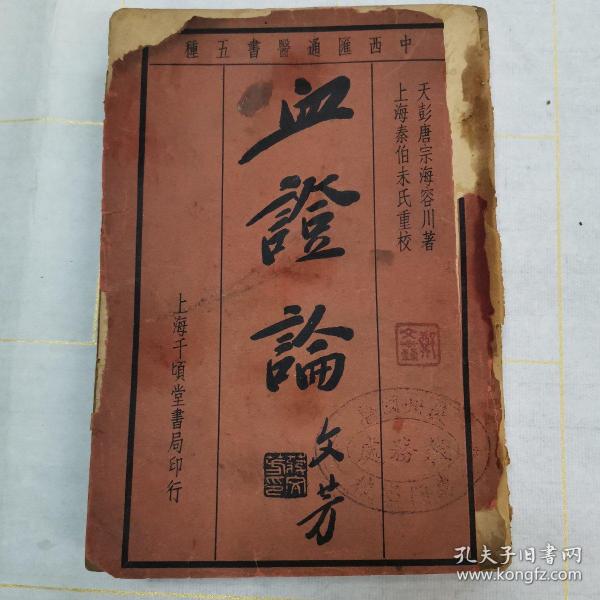 中西匯通醫書五種
天彭唐宗海容川著
上海秦伯未氏重校
血證論
文芳
蔣文芳印
上海千頃堂書局印行
孔夫子旧书网
www.kongfz.com